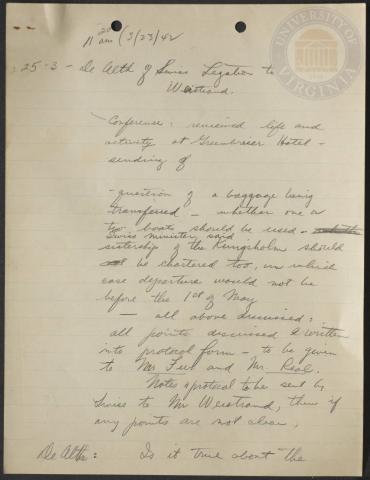 11 20 am (3/23/42
25-3 - De Alth of Swiss Legation to
Westrand.
Conference: reviewed life and
activity at Greenbrier Hotel -
sending of
- question of a baggage being
transferred - whether one or
two boats should be used -
Swiss minister said
sistership of the Kungsholm should
be chartered too, in which
case departure would not be
before the 1st of May
- all above discussed:
all points discussed & written
into protocol form - to be given
to Mr Fur and Mr. Real.
Notes & protocol to be sent by
Swiss to Mr Westrand, then if
any points are not clear,
De Alth: Is it true about the
UNIVERSITY OF VIRGINIA